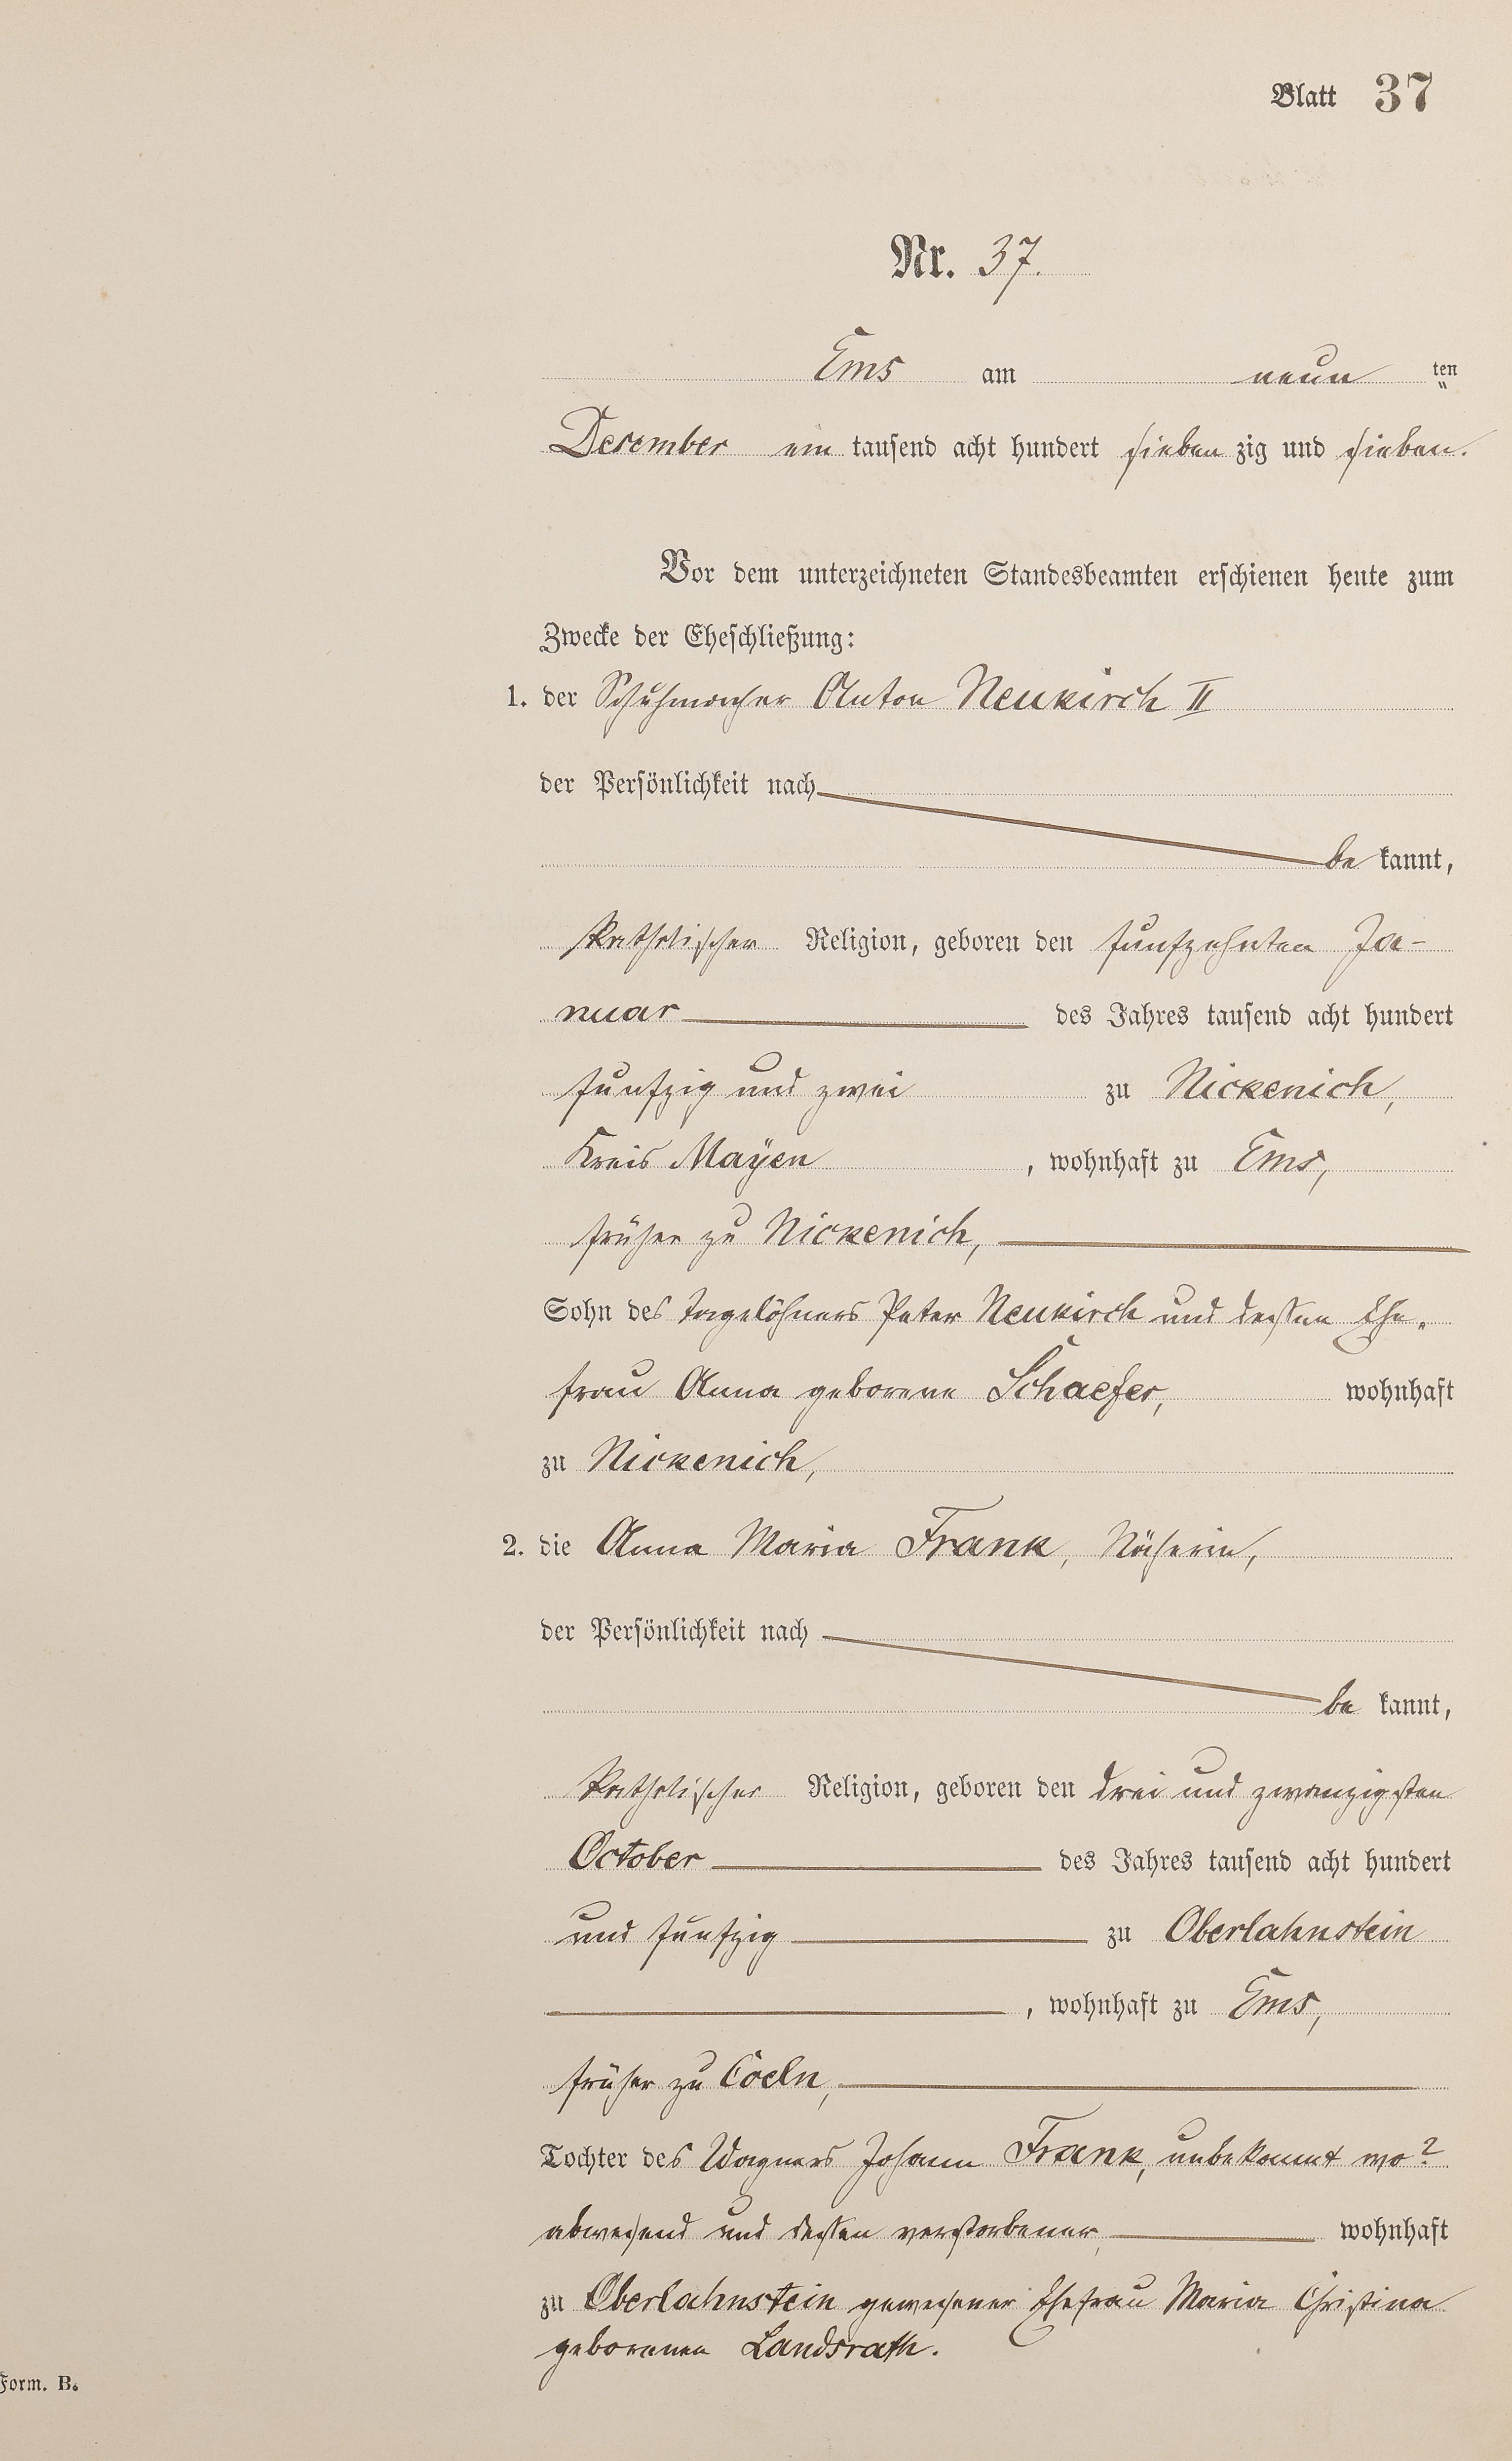 Blatt 37
Nr. 37.
Ems am neun ten
December ein tausend acht hundert sieben zig und sieben.
Vor dem unterzeichneten Standesbeamten erschienen heute zum
Zwecke der Eheschließung:
1. der Schuhmacher Anton Neukirch II
der Persönlichkeit nach
be kannt,
katholischer Religion, geboren den funfzehnten Ja-
nuar des Jahres tausend acht hundert
funfzig und zwei zu Nickenich,
Kreis Mayen, wohnhaft zu Ems,
früher zu Nickenich,
Sohn des Tagelöhners Peter Neukirch und dessen Ehe-
frau Anna geborene Schaefer, wohnhaft
zu Nickenich,
2. die Anna Maria Frank, Näherin,
der Persönlichkeit nach
be kannt,
katholischer Religion, geboren den drei und zwanzigsten
October des Jahres tausend acht hundert
und funfzig zu Oberlahnstein
, wohnhaft zu Ems,
früher zu Coeln,
Tochter des Wagners Johann Frank, unbekannt wo?
abwesend und dessen verstorbener, wohnhaft
zu Oberlahnstein gewesener Ehefrau Maria Christina
geborenen Landsrath.
Form. B.